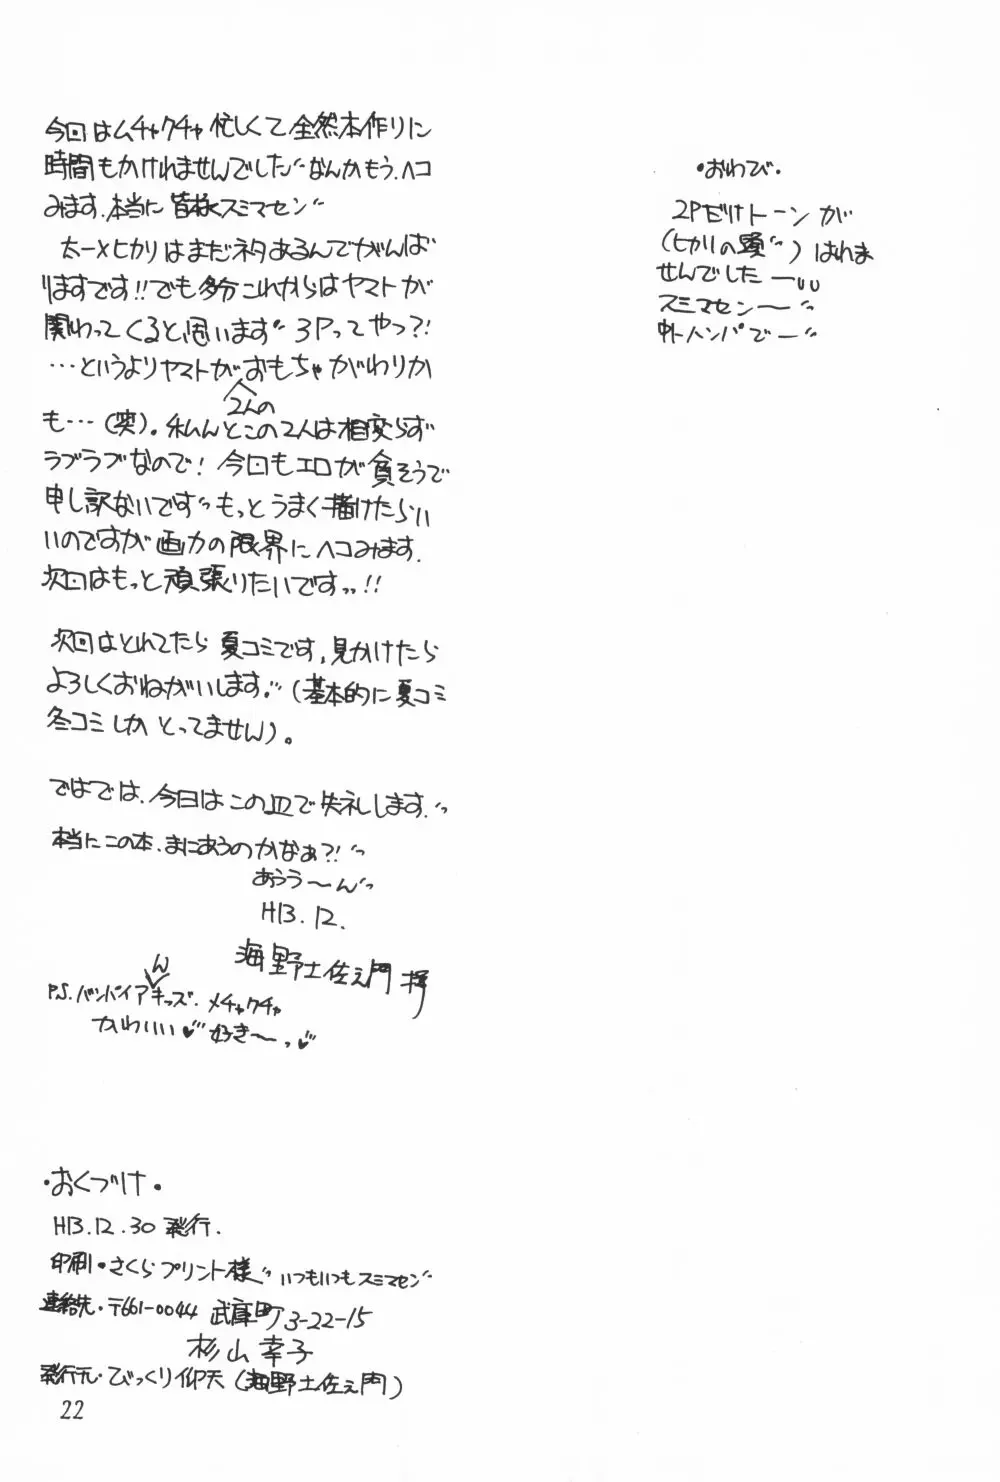 今回はムチャクチャ忙しくて全然本作りに
時間もかけれませんでした゛なんかもう、ヘコ
みます、本当に皆様スミマセン゛
太一×ヒカリはまだネタあるんでがんば
りますです!!でも多分これからはヤマトが
関わってくると思います゛3Pってやつ?!
…というよりヤマトがおもちゃがわりか
2人の
も…(笑)。私んとこの2人は相変らず
ラブラブなので!今回もエロが貧そうで
申し訳ないです゛もっとうまく描けたらい
いのですが画力の限界にヘコみます.
次回はもっと頑張りたいですっ!!
次回はとれてたら夏コミです,見かけたら
よろしくおねがいします.゛(基本的に夏コミ
冬コミしかとってません)。
ではでは、今日はこの辺で失礼します.゛
本当にこの本、まにあうのかなぁ?!゛
あうう〜ん゛
H13.12.
海野土佐ェ門 拝
ん
P.S.バンパイアキッズ、メチャクチャ
かわいい♥゛好き〜っ♥
・おくづけ・
H13.12.30発行.
印刷・さくらプリント様゛いつもいつもスミマセン゛
連絡先・〒661-0044 武庫町3-22-15
杉山幸子
発行元・びっくり仰天(海野土佐ェ門)
22
・おわび・
2Pだけトーンが
(ヒカリの頭゛)はれま
せんでしたー
スミマセン〜゛
中トハンパでー゛